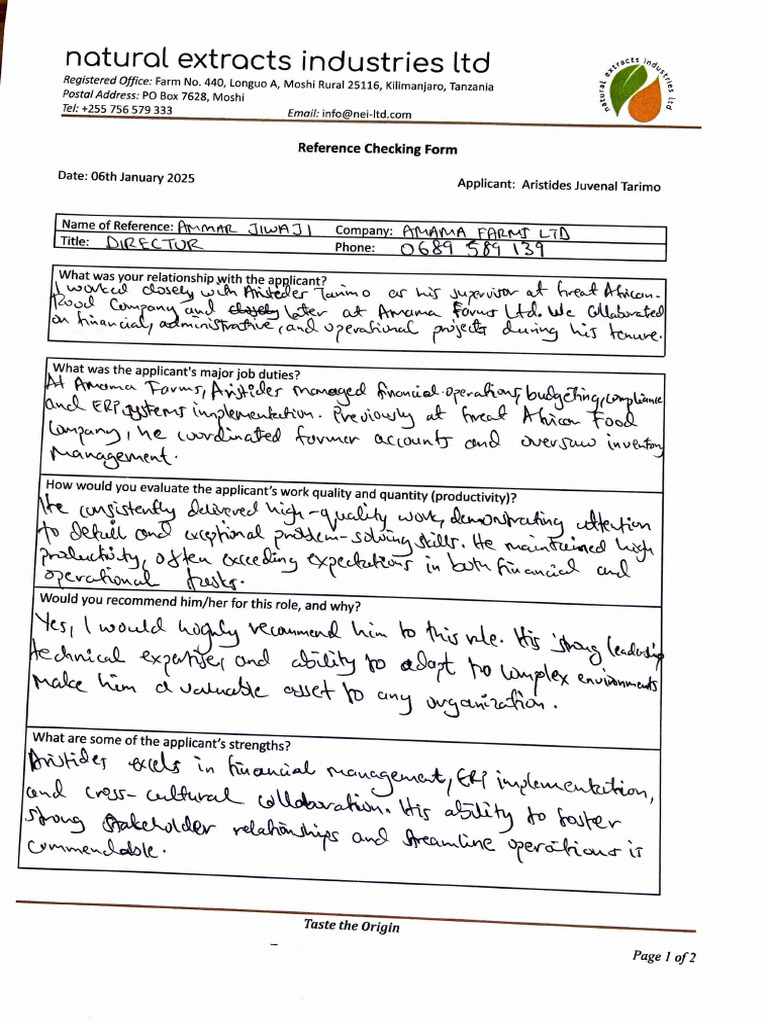 natural extracts industries ltd
Registered Office: Farm No. 440, Longuo A, Moshi Rural 25116, Kilimanjaro, Tanzania
Postal Address: PO Box 7628, Moshi
Tel: +255 756 579 333 Email: info@nei-ltd.com
natural extracts industries ltd
Reference Checking Form
Date: 06th January 2025 Applicant: Aristides Juvenal Tarimo
Name of Reference: AMMAR JIWAJI Company: AMAMA FARMS LTD
Title: DIRECTOR Phone: 0689 589 139
What was your relationship with the applicant?
I worked closely with Aristides Tarimo as his supervisor at Great African
Food Company and closely later at Amama Farms Ltd. We collaborated
on financial, administrative, and operational projects during his tenure.
What was the applicant's major job duties?
At Amama Farms, Aristides managed financial operations, budgeting, compliance
and ERP systems implementation. Previously at Great African Food
Company, he coordinated farmer accounts and oversaw inventory
Management.
How would you evaluate the applicant's work quality and quantity (productivity)?
He consistently delivered high-quality work, demonstrating attention
to detail and exceptional problem-solving skills. He maintained high
productivity, often exceeding expectations in both financial and
operational tasks.
Would you recommend him/her for this role, and why?
Yes, I would highly recommend him to this role. His strong leadership
technical expertise, and ability to adapt to complex environments
make him a valuable asset to any organization.
What are some of the applicant's strengths?
Aristides excels in financial management, ERP implementation,
and cross-cultural collaboration. His ability to foster
strong stakeholder relationships and streamline operations is
commendable.
Taste the Origin
Page 1 of 2